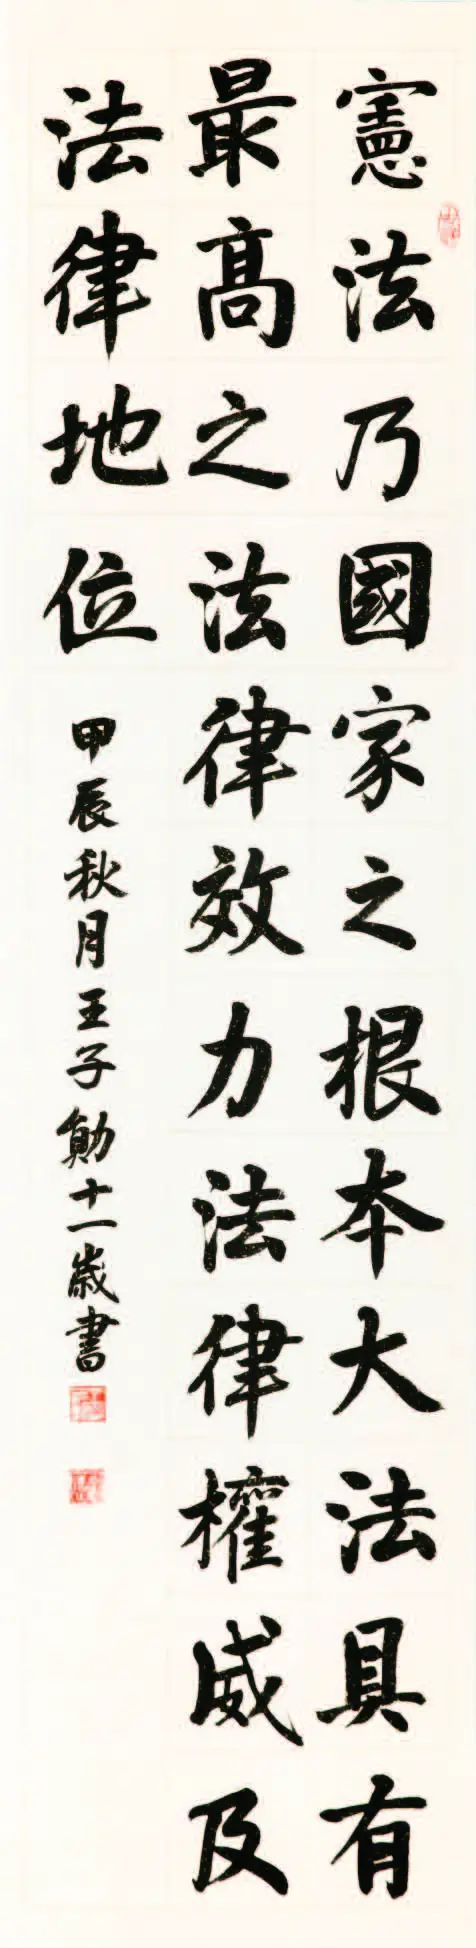 憲法乃國家之根本大法具有
最高之法律效力法律權威及
法律地位
甲辰秋月王子勛十一歲書